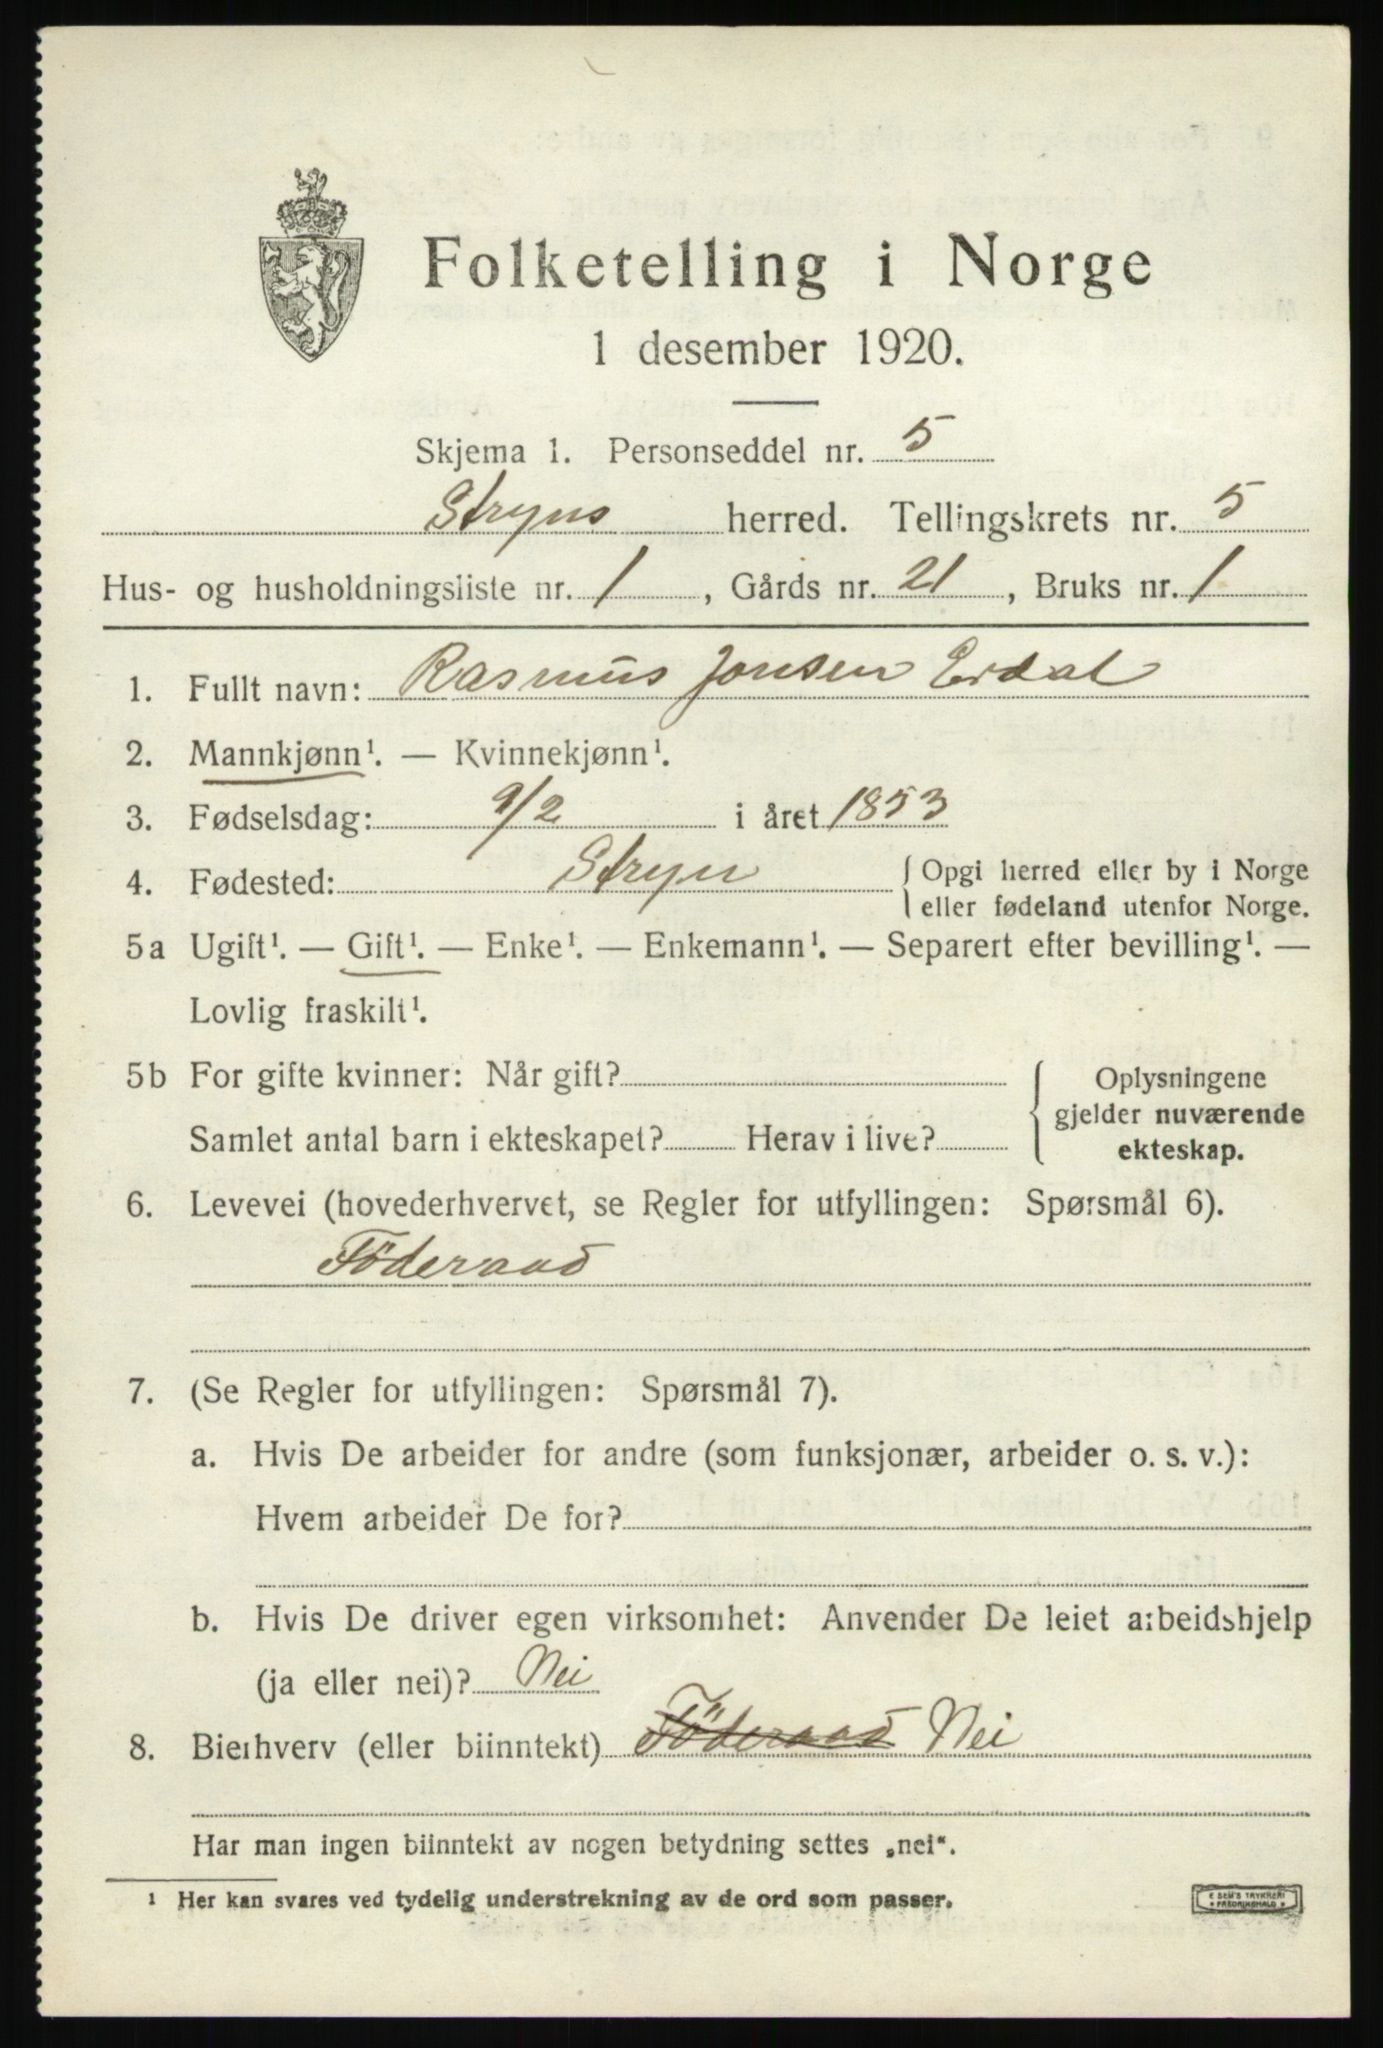 Folketelling i Norge
1 desember 1920.
Skjema 1. Personseddel nr. 5
Stryns herred. Tellingskrets nr. 5
Hus- og husholdningsliste nr. 1, Gårds nr. 21, Bruks nr. 1
1. Fullt navn: Rasmus Jonsen Erdal
2. Mannkjønn¹. — Kvinnekjønn¹.
3. Fødselsdag: 9/2 i året 1853
4. Fødested: Stryn { Opgi herred eller by i Norge
eller fødeland utenfor Norge.
5a Ugift¹. — Gift¹. — Enke¹. — Enkemann¹. — Separert efter bevilling¹. —
Lovlig fraskilt¹.
5b For gifte kvinner: Når gift? { Oplysningene
gjelder nuværende
Samlet antal barn i ekteskapet? Herav i live? ekteskap.
6. Levevei (hovederhvervet, se Regler for utfyllingen: Spørsmål 6).
Föderaad
7. (Se Regler for utfyllingen: Spørsmål 7).
a. Hvis De arbeider for andre (som funksjonær, arbeider o. s. v.):
Hvem arbeider De for?
b. Hvis De driver egen virksomhet: Anvender De leiet arbeidshjelp
(ja eller nei)? Nei
8. Bierhverv (eller biinntekt) Föderaad Nei
Har man ingen biinntekt av nogen betydning settes „nei“.
¹ Her kan svares ved tydelig understrekning av de ord som passer.
E SEM'S TRYKKERI
FREDRIKSHALD